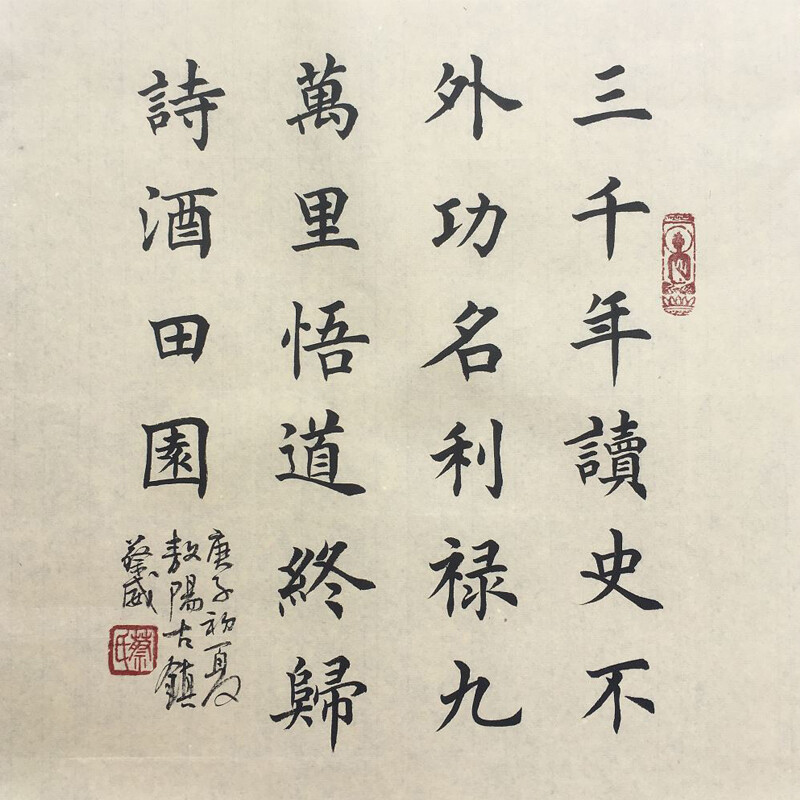 三千年讀史不
外功名利禄九
萬里悟道終歸
詩酒田園
庚子初夏
敖陽古鎮
蔡威
蔡氏